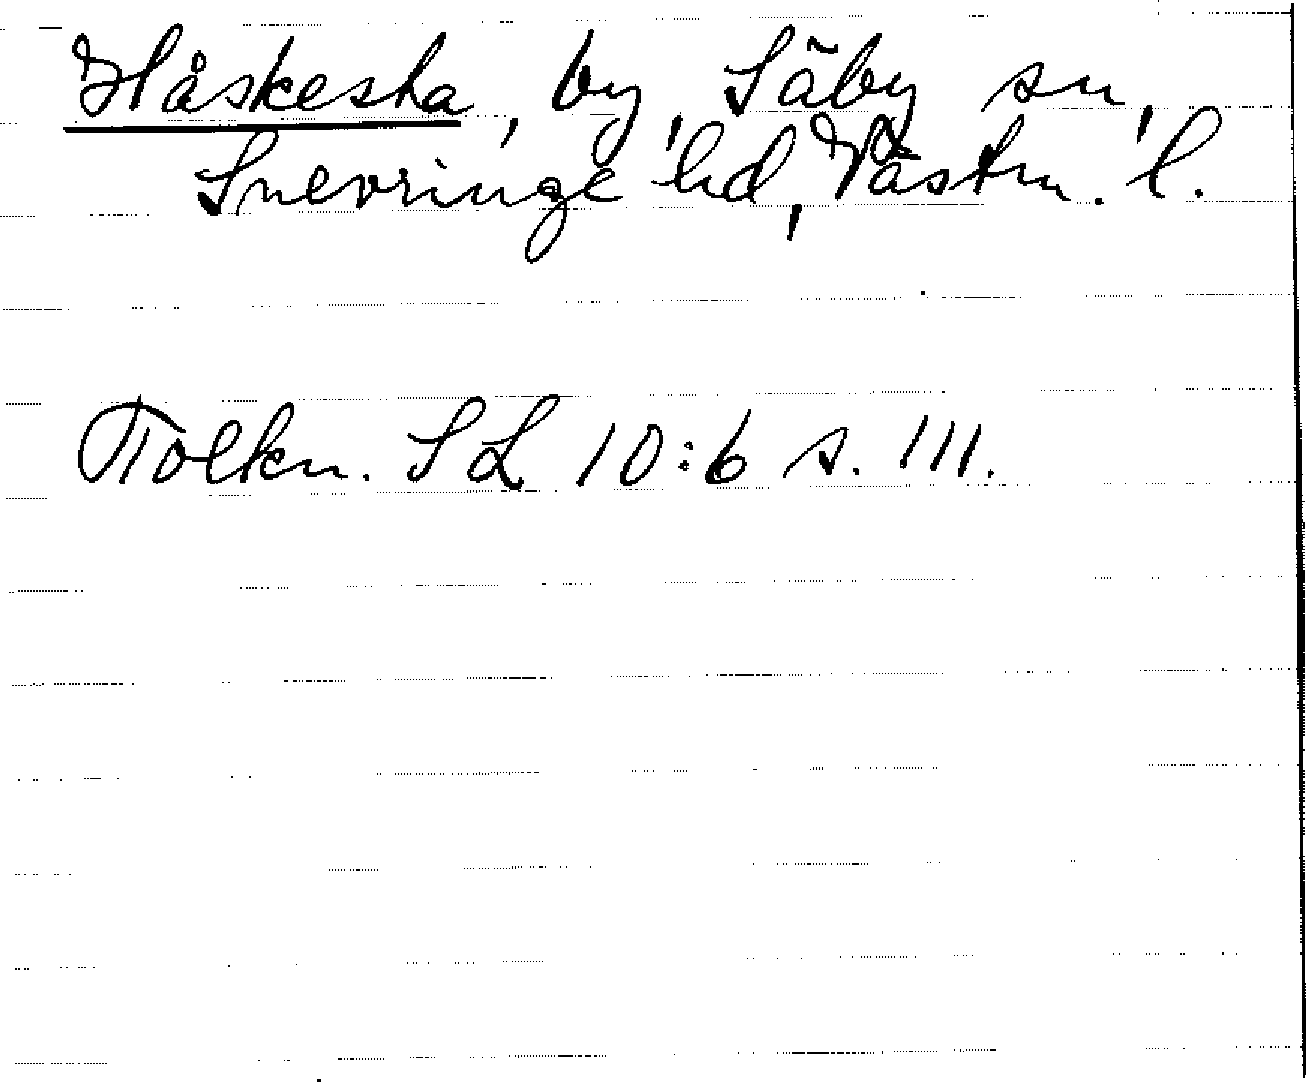 Håskesta, by, Säby sn,
Snevringe hd, Västm. l.
Tolkn. SL 10:6 s. 111.